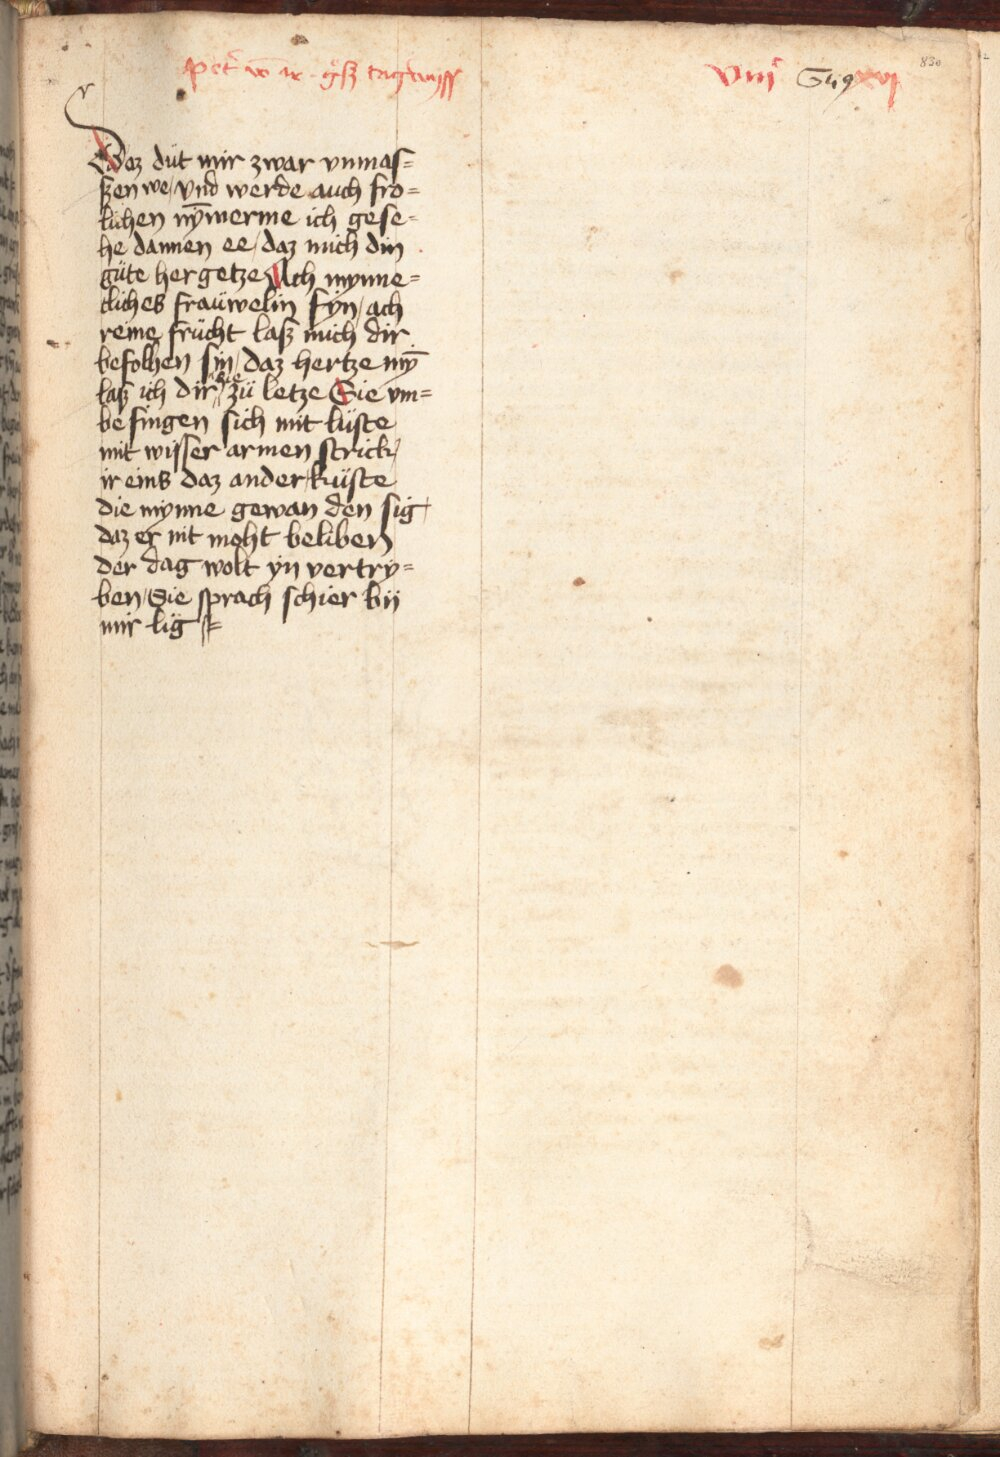 Pet' vō ar. gͦsz tagweiss
viijͨ xvj
830
Daz düt mir zwar vnmas=
szen we / vnd werde auch fro=
lichen nȳmerme ich gese=
he dannen ee / daz mich din
güte hergetze Ach mynne=
cliches fraüwelin fÿn / ach
reine frücht lasz mich dir
befolhen sin / daz hertze mȳ
lasz ich dir / hie zü letze Sie vm=
befingen sich mit lüste
mit wisser armen strick /
ir eins daz ander küste
die mynne gewan den sig /
daz er nit moht beliben
der dag wolt yn vertry=
ben / Sie sprach schier bÿ
mir lig